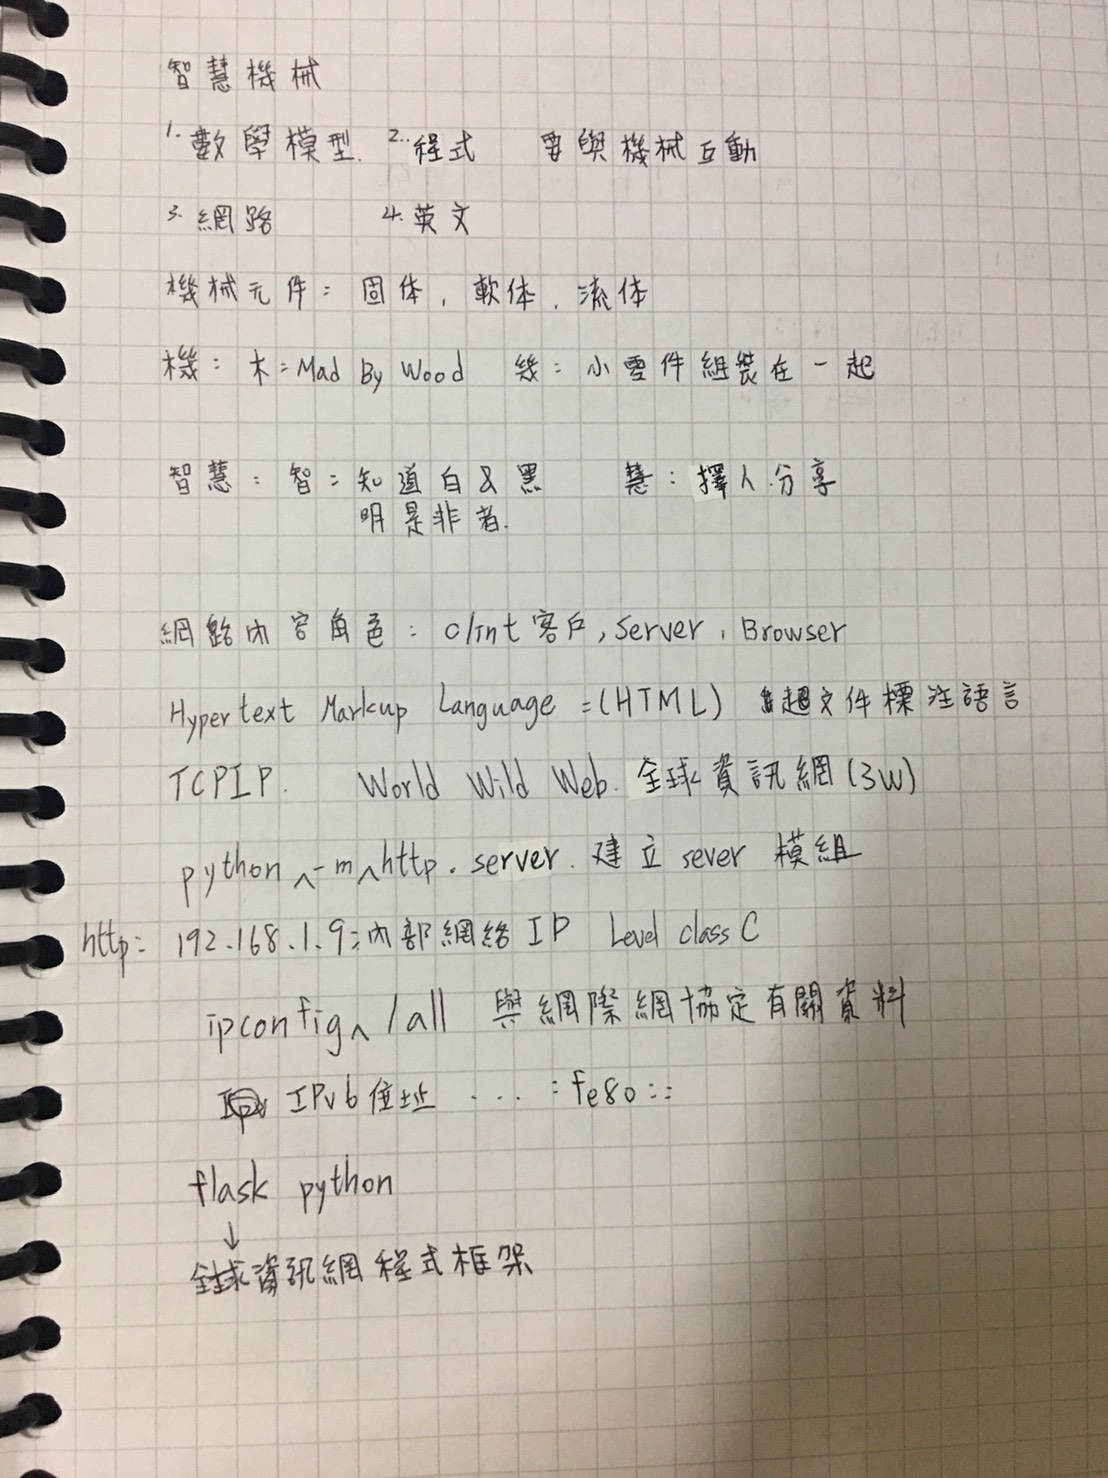 智慧機械
1. 數學模型. 2. 程式 要與機械互動
3. 網路 4. 英文
機械元件: 固体, 軟体, 流体
機: 木: Mad By Wood 幾: 小零件組裝在一起
智慧: 智: 知道白&黑 慧: 擇人分享
明是非者.
網路內容角色: clint 客戶, Server, Browser
Hypertext Markup Language = (HTML) 超文件標注語言
TCPIP. World Wild Web. 全球資訊網 (3W)
python ^ -m ^ http. server. 建立 sever 模組
http: 192.168.1.9: 內部網絡 IP Level class C
ipconfig ^ /all 與網際網協定有關資料
IPv6 位址 ... : fe80::
flask python
↓
全球資訊網程式框架